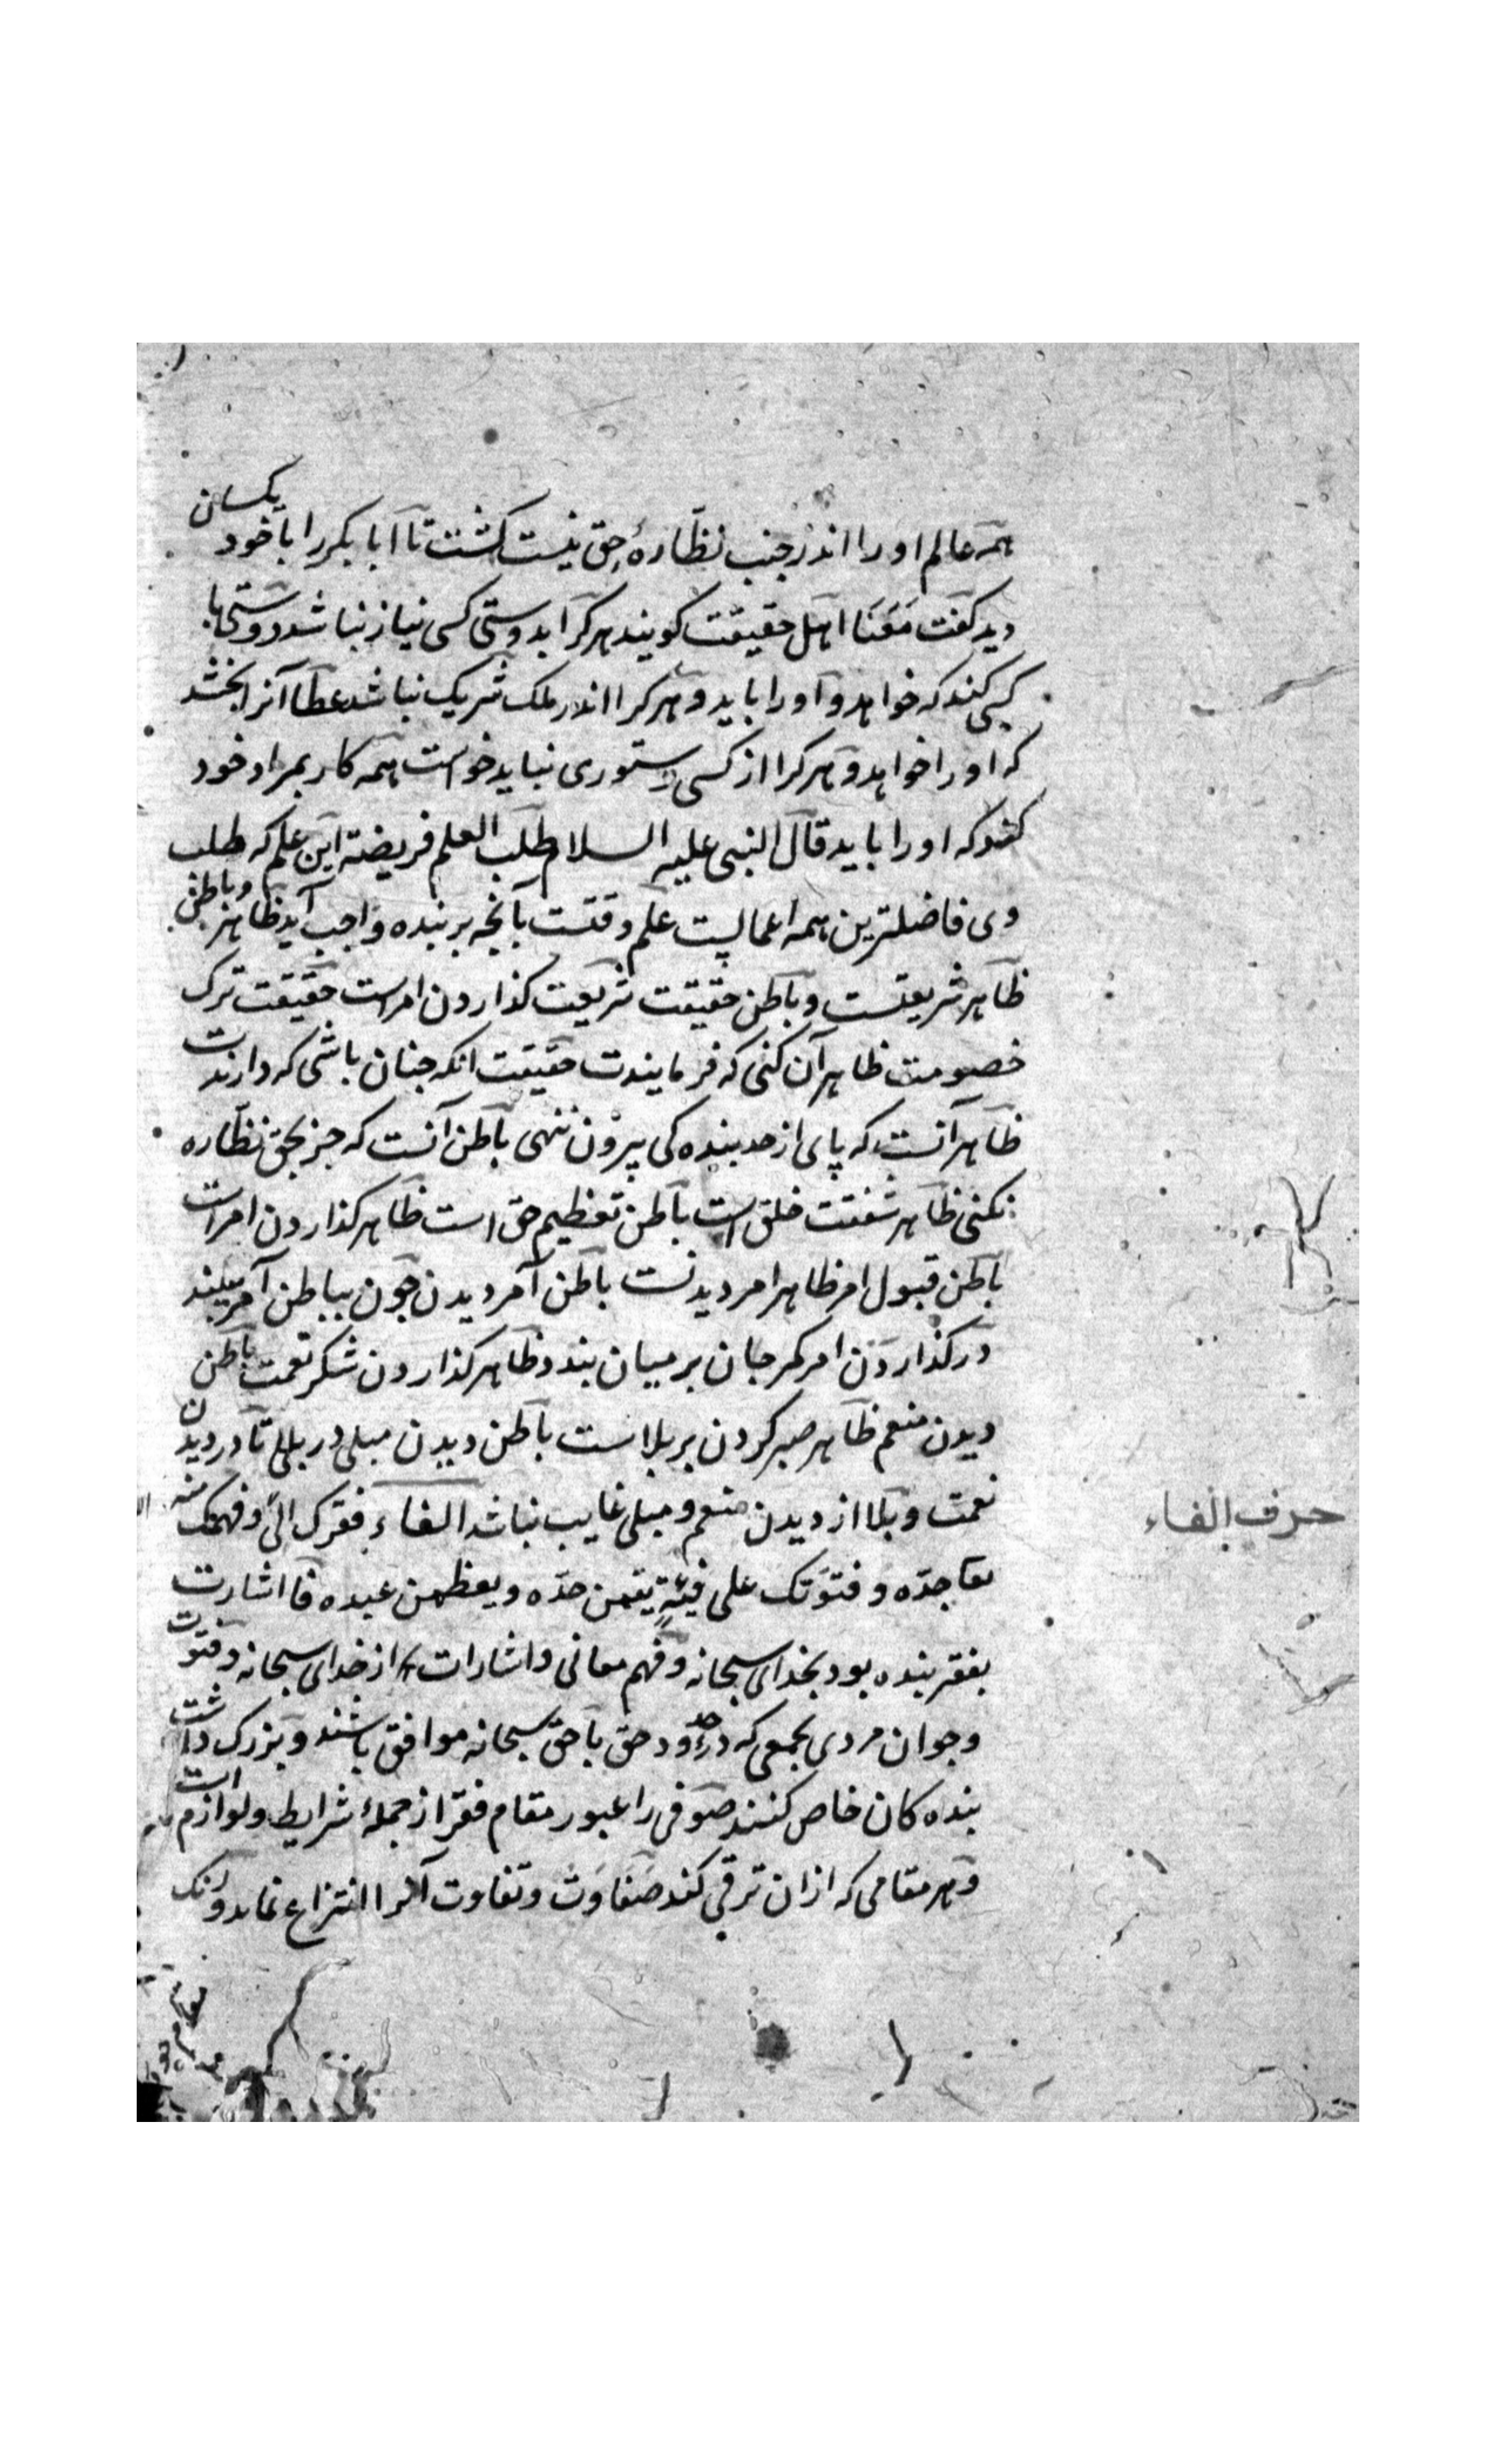 همه عالم او را اندر جنب نظارهٔ حق نیست کشت تا ابا بکر را با خود یکسان
دید کفت مَعَنَا اهل حقیقت کویند هر کرا بدوستی کسی نیاز نباشد دوستی با
کسی کند که خواهد و او را باید و هر کرا اندر ملک شریک نباشد عطا آنرا بخشد
که او را خواهد و هر کرا از کسی دستوری نباید خواست همه کار بمراد خود
کند که او را باید قال النبی علیه السلام طلب العلم فریضة این علم که طلب
وی فاضلترین همه اعمالست علم وقتست بآنچه بر بنده واجب آید ظاهر و باطن
ظاهر شریعتست و باطن حقیقت شریعت کذاردن امراست حقیقت ترک
خصومت ظاهر آن کنی که فرمایندت حقیقت انکه چنان باشی که دارندت
ظاهر آنست که پای از حد بنده کی بیرون ننهی باطن آنست که جز بحق نظاره
نکنی ظاهر شفقت خلق است باطن تعظیم حق است ظاهر کذاردن امراست
باطن قبول امر ظاهر امر دیدنست باطن آمر دیدن چون بباطن آمر بیند
در کذاردن امر کمر جان بر میان بندد ظاهر کذاردن شکر نعمت باطن
دیدن منعم ظاهر صبر کردن بر بلا است باطن دیدن مبلی در بلا تا در دیدن
نعمت و بلا از دیدن منعم و مبلی غایب نباشد الفاء فقرک الیّ و فهمک منه
حرف الفاء
جدّه و فتوّتک علی فیئةٍ یقمن حدّه و یعظمن عبده فا اشارت
بفقر بنده بود بخدای سبحانه و فهم معانی و اشارات از خدای سبحانه و فتوت
و جوان مردی بجمعی که در حدود حق با حق سبحانه موافق باشند و بزرک داشت
بنده کان خاص کنند صوفی را عبور مقام فقر از جملهٔ شرایط و لوازم است
و هر مقامی که ازان ترقی کند صفاوت و تفاوت آنرا انتزاع نماید و رنک